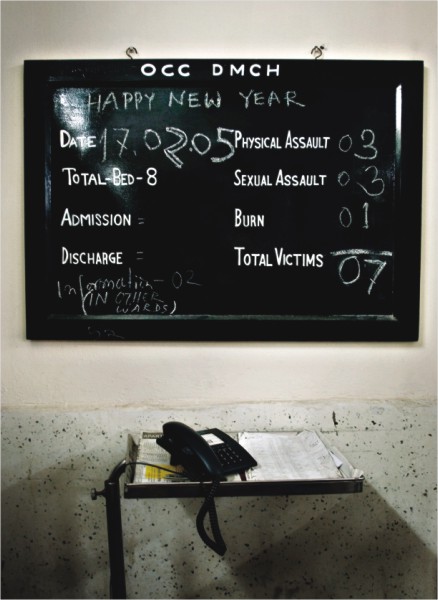 OCC DMCH
HAPPY NEW YEAR
DATE 17.02.05 PHYSICAL ASSAULT 03
TOTAL-BED-8 SEXUAL ASSAULT 03
ADMISSION = BURN 01
DISCHARGE = TOTAL VICTIMS 07
Information - 02
(IN OTHER
WARDS)